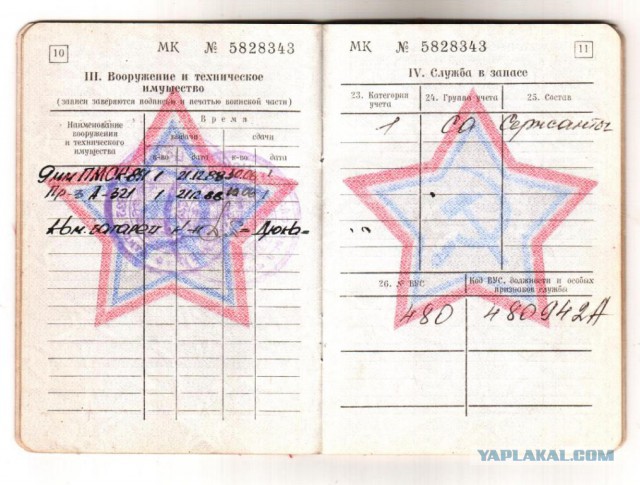 10
МК № 5828343
III. Вооружение и техническое
имущество
(записи заверяются подписью и печатью воинской части)
Наименование
вооружения
и технического
имущества
Время
выдачи
сдачи
к-во
дата
к-во
дата
9мм ПМ 1 1
Пр-З Д-321 1 1
МК № 5828343
11
IV. Служба в запасе
23. Категория
учета
24. Группа учета
25. Состав
1 СА Сержанты
26. № ВУС
Код ВУС, должности и особых
признаков службы
480 480942А
YAPLAKAL.COM